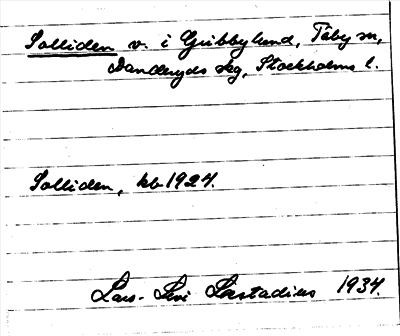 Solliden v. i Gribbylund, Täby sn,
Danderyds skg, Stockholms l.
Solliden, kb 1924.
Lars-Levi Læstadius 1934.